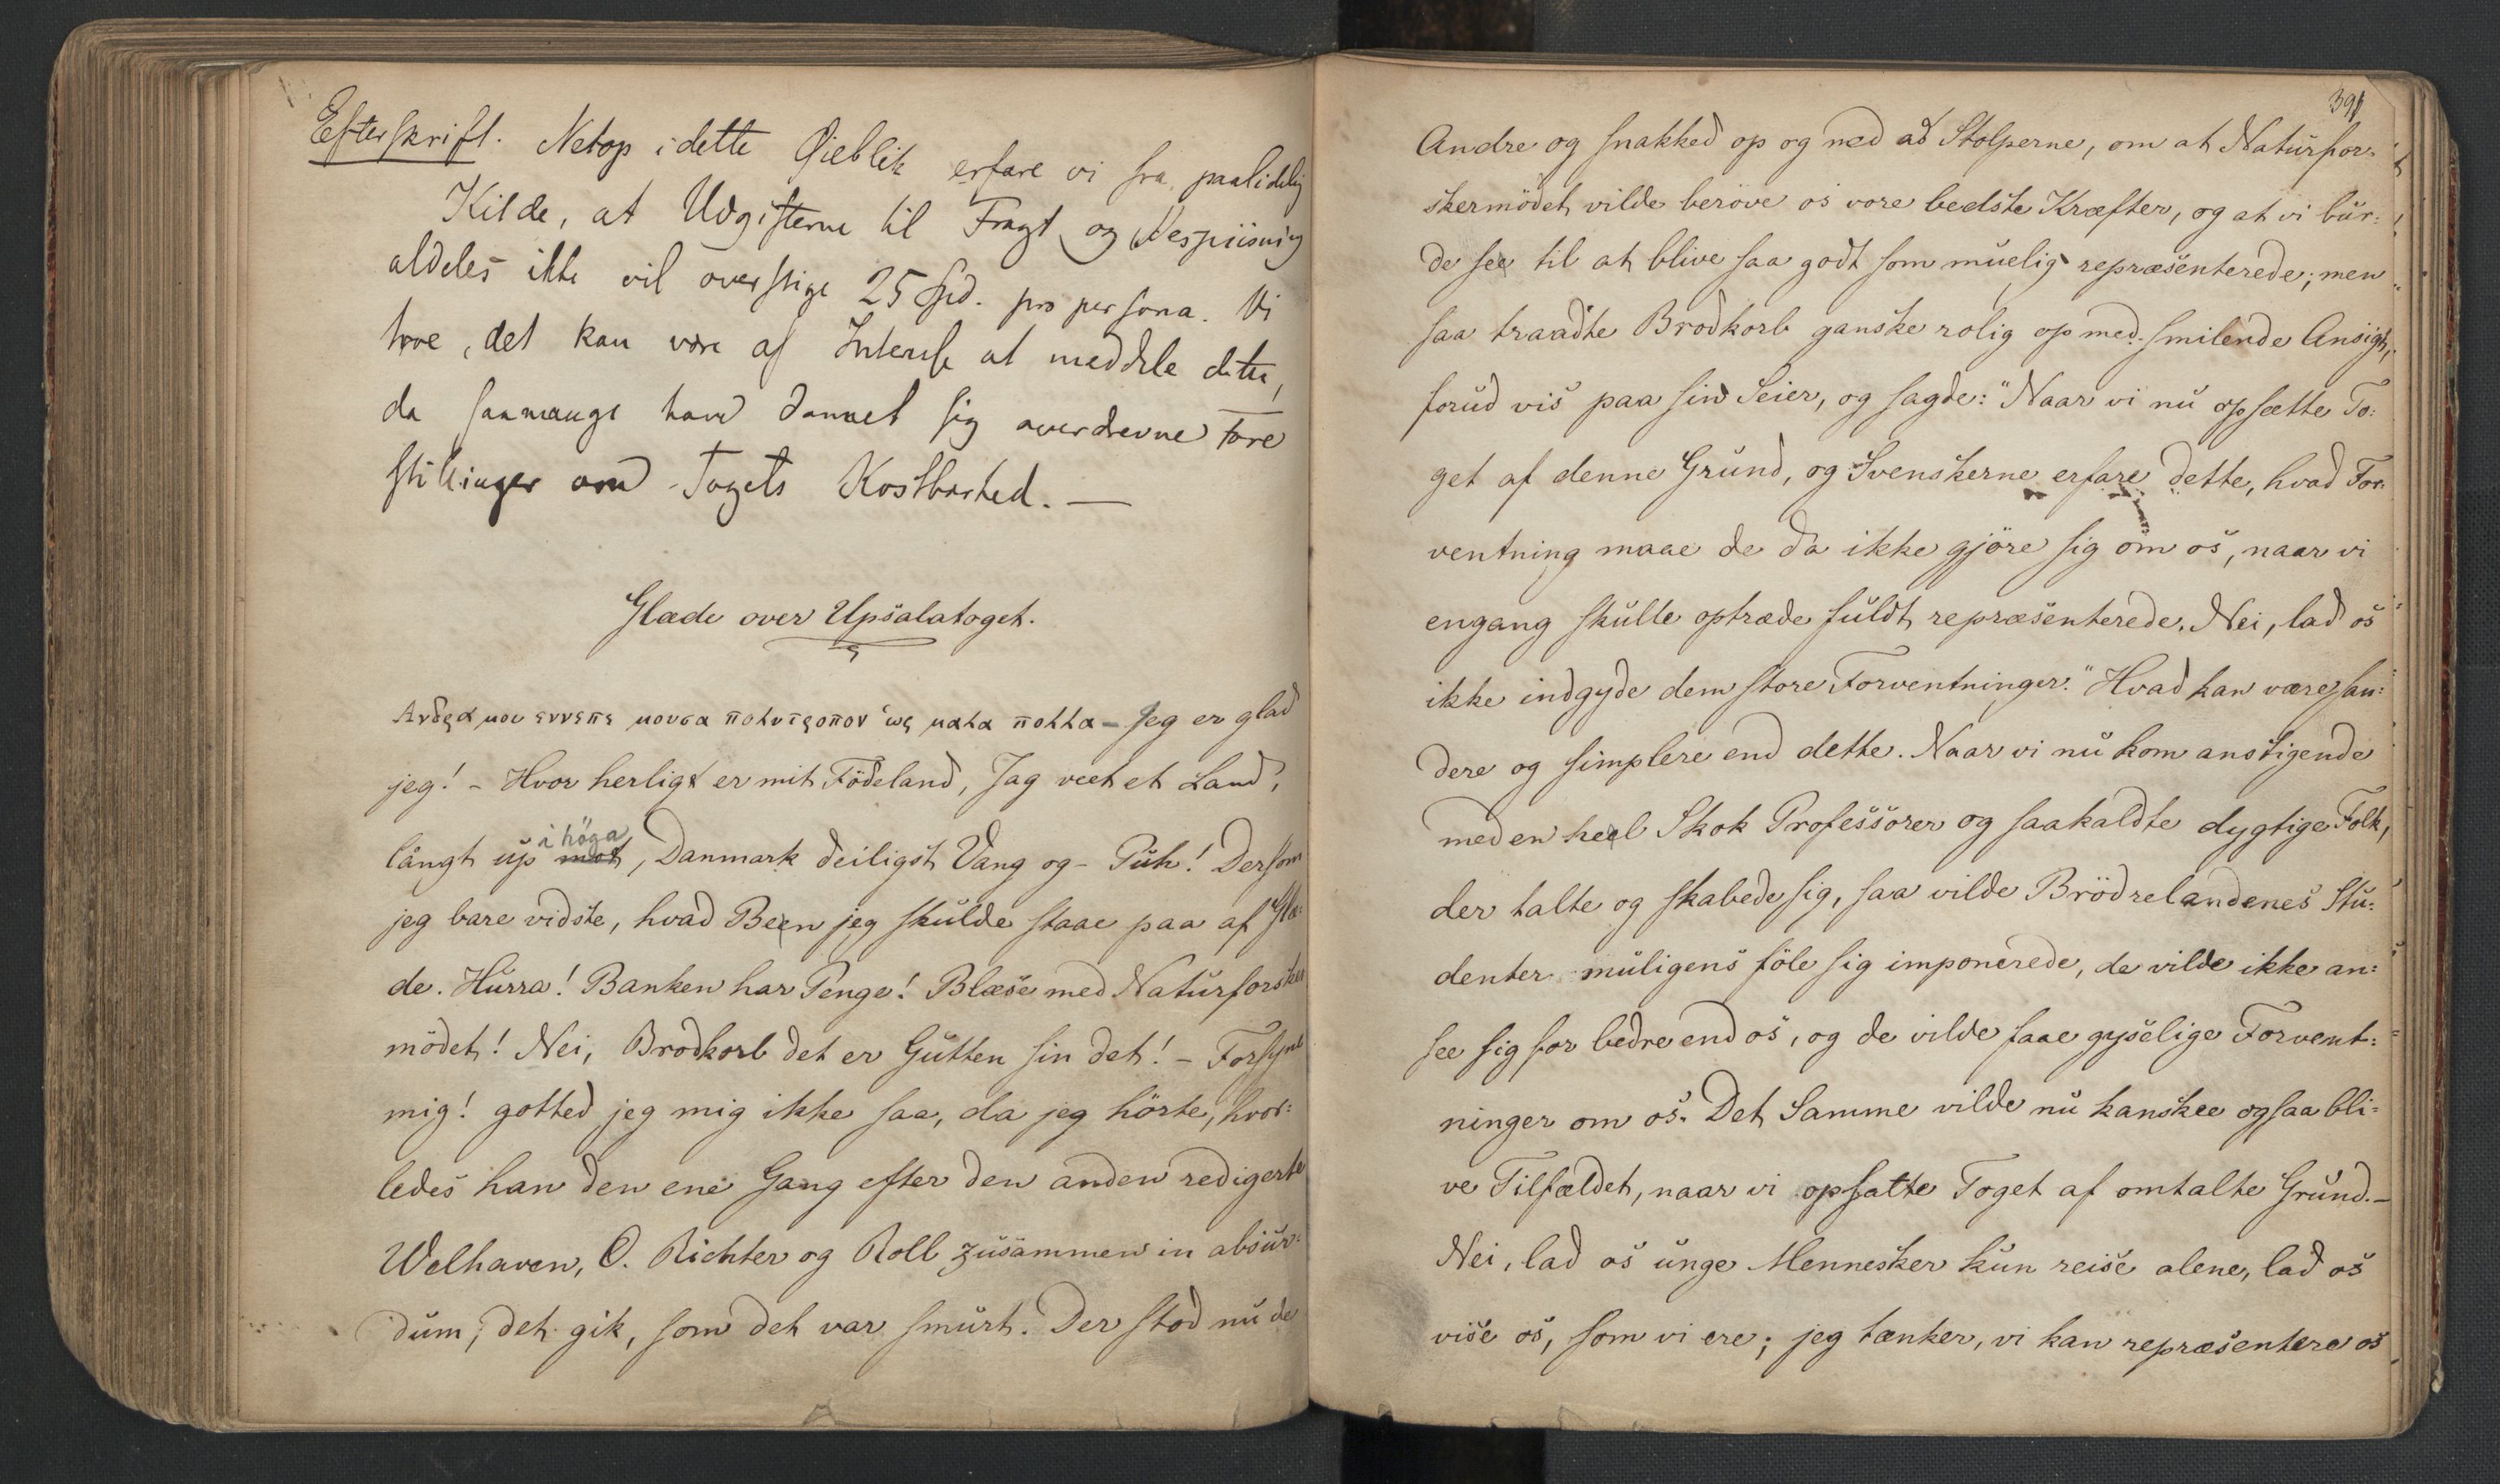 Efterskrift. Netop i dette Øieblik erfare vi fra paalidelig
Kilde, at Udgifterne til Fragt og Bespiisning
aldeles ikke vil overstige 25 Spd. pro persona. Vi
troe, det kan være af Interesse at meddele dette,
da saamange have dannet sig overdrevne Fore
stillinger om Togets Kostbarhed. —
Glæde over Upsalatoget.
Ανδρα μου εννεπε μουσα πολυτροπον ὡς μαλα πολλα – Jeg er glad
jeg! – Hvor herligt er mit Födeland, Jag veet et Land,
långt up i höga mot, Danmark deiligst Vang og – Puh! Dersom
jeg bare vidste, hvad Been jeg skulde staae paa af Glæ-
de. Hurra! Banken har Penge! Blæse med Naturforsker
mödet! Nei, Brodkorb det er Gutten sin det! – Forsynd
mig! gotted jeg mig ikke saa, da jeg hörte, hvor-
ledes han den ene Gang efter den anden redigerte
Welhaven, O. Richter og Roll zusammen in absur-
dum; det gik, som det var smurt. Der stod nu de
391
Andre og snakked op og ned ad Stolperne, om at Naturfor-
skermödet vilde beröve os vore bedste Kræfter, og at vi bur-
de see til at blive saa godt som muelig repræsenterede; men
saa traadte Brodkorb ganske rolig op med smilende Ansigt,
forud vis paa sin Seier, og sagde: "Naar vi nu opsætte To-
get af denne Grund, og Svenskerne erfare dette, hvad For-
ventning maae de da ikke gjöre sig om os, naar vi
engang skulle optræde fuldt repræsenterede. Nei, lad os
ikke indgyde dem store Forventninger." Hvad kan være san-
dere og simplere end dette. Naar vi nu kom anstigende
med en heel Skok Professorer og saakaldte dygtige Folk,
der talte og skabede sig, saa vilde Brödrelandenes Stu-
denter muligens föle sig imponerede, de vilde ikke an-
see sig for bedre end os, og de vilde faae gyselige Forvent-
ninger om os. Det Samme vilde nu kanskee ogsaa bli-
ve Tilfældet, naar vi opsatte Toget af omtalte Grund. –
Nei, lad os unge Mennesker kun reise alene, lad os
vise os, som vi ere; jeg tænker, vi kan repræsentere os